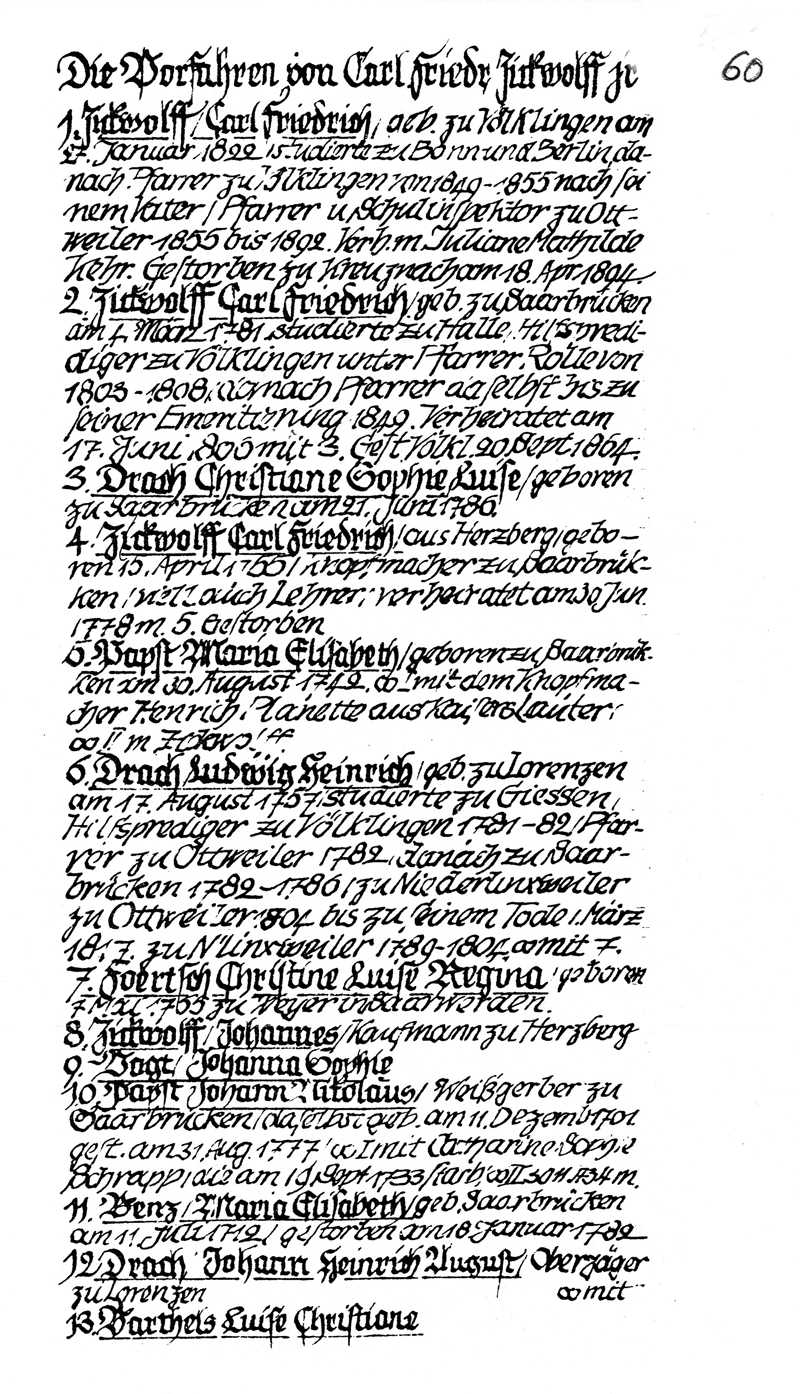 Die Vorfahren von Carl Friedr Zickwolff jr
60
1. Zickwolff/Carl Friedrich/ geb. zu Völklingen am
27. Januar 1822 studierte zu Bonn und Berlin, da-
nach Pfarrer zu Völklingen von 1849-1855 nach sei
nem Vater/Pfarrer u. Schulinspektor zu Ott-
weiler 1855 bis 1892. Verh.m. Juliane Mathilde
Kehr. Gestorben zu Kreuznach am 18. Apr. 1894
2. Zickwolff Carl Friedrich/geb. zu Saarbrücken
am 4. März 1781 studierte zu Halle, Hilfspredi-
diger zu Völklingen unter Pfarrer Rolle von
1803-1808, danach Pfarrer daselbst bis zu
seiner Emeritierung 1849. Verheiratet am
17. Juni 1806 mit 3. Gest Völkl. 20. Sept 1864.
3. Drach Christiane Sophie Luise/geboren
zu Saarbrücken am 21. Juni 1786
4. Zickwolff Carl Friedrich/aus Herzberg/gebo-
ren 15. April Knopfmacher zu Saarbrük-
ken/ auch Lehrer/ verheiratet am 30 Jun.
1778 m. 5. Gestorben
5. Papst Maria Elisabeth/geboren zu Saarbrük-
ken am 30. August 1742. ∞ I mit dem Knopfma-
cher Henrich Planette aus Kaiserslauter/
∞ II m Zickwolff
6. Drach/Ludwig Heinrich/geb. zu Lorenzen
am 17. August 1757/studierte zu Giessen/
Hilfsprediger zu Völklingen 1781-82/Pfar-
rer zu Ottweiler 1782, danach zu Saar-
brücken 1782-1786/zu Niederlinxweiler
zu Ottweiler 1804 bis zu seinem Tode 1. März
1817. zu N'linxweiler 1789-1804 ∞ mit 7.
7. Foertsch Christine Luise Regina/geboren
7 Mai zu Weyer in Saarwerden.
8. Zickwolff/Johannes/Kaufmann zu Herzberg
9. Vogt/Johanna Sophie
10. Papst Johann Nikolaus/ Weißgerber zu
Saarbrücken/daselbst geb. am 11. Dezemb 1701
gest. am 31. Aug. 1777 ∞ I mit Catharine Sophie
Schrapp/die am 19. Sept 1733 starb, ∞ II 1734 m.
11. Benz/Maria Elisabeth/geb. Saarbrücken
am 11. Juli 1712/ gestorben am 18. Januar 1782
12. Drach Johann Heinrich August/ Oberjäger
zu Lorenzen ∞ mit
13. Barthels Luise Christiane